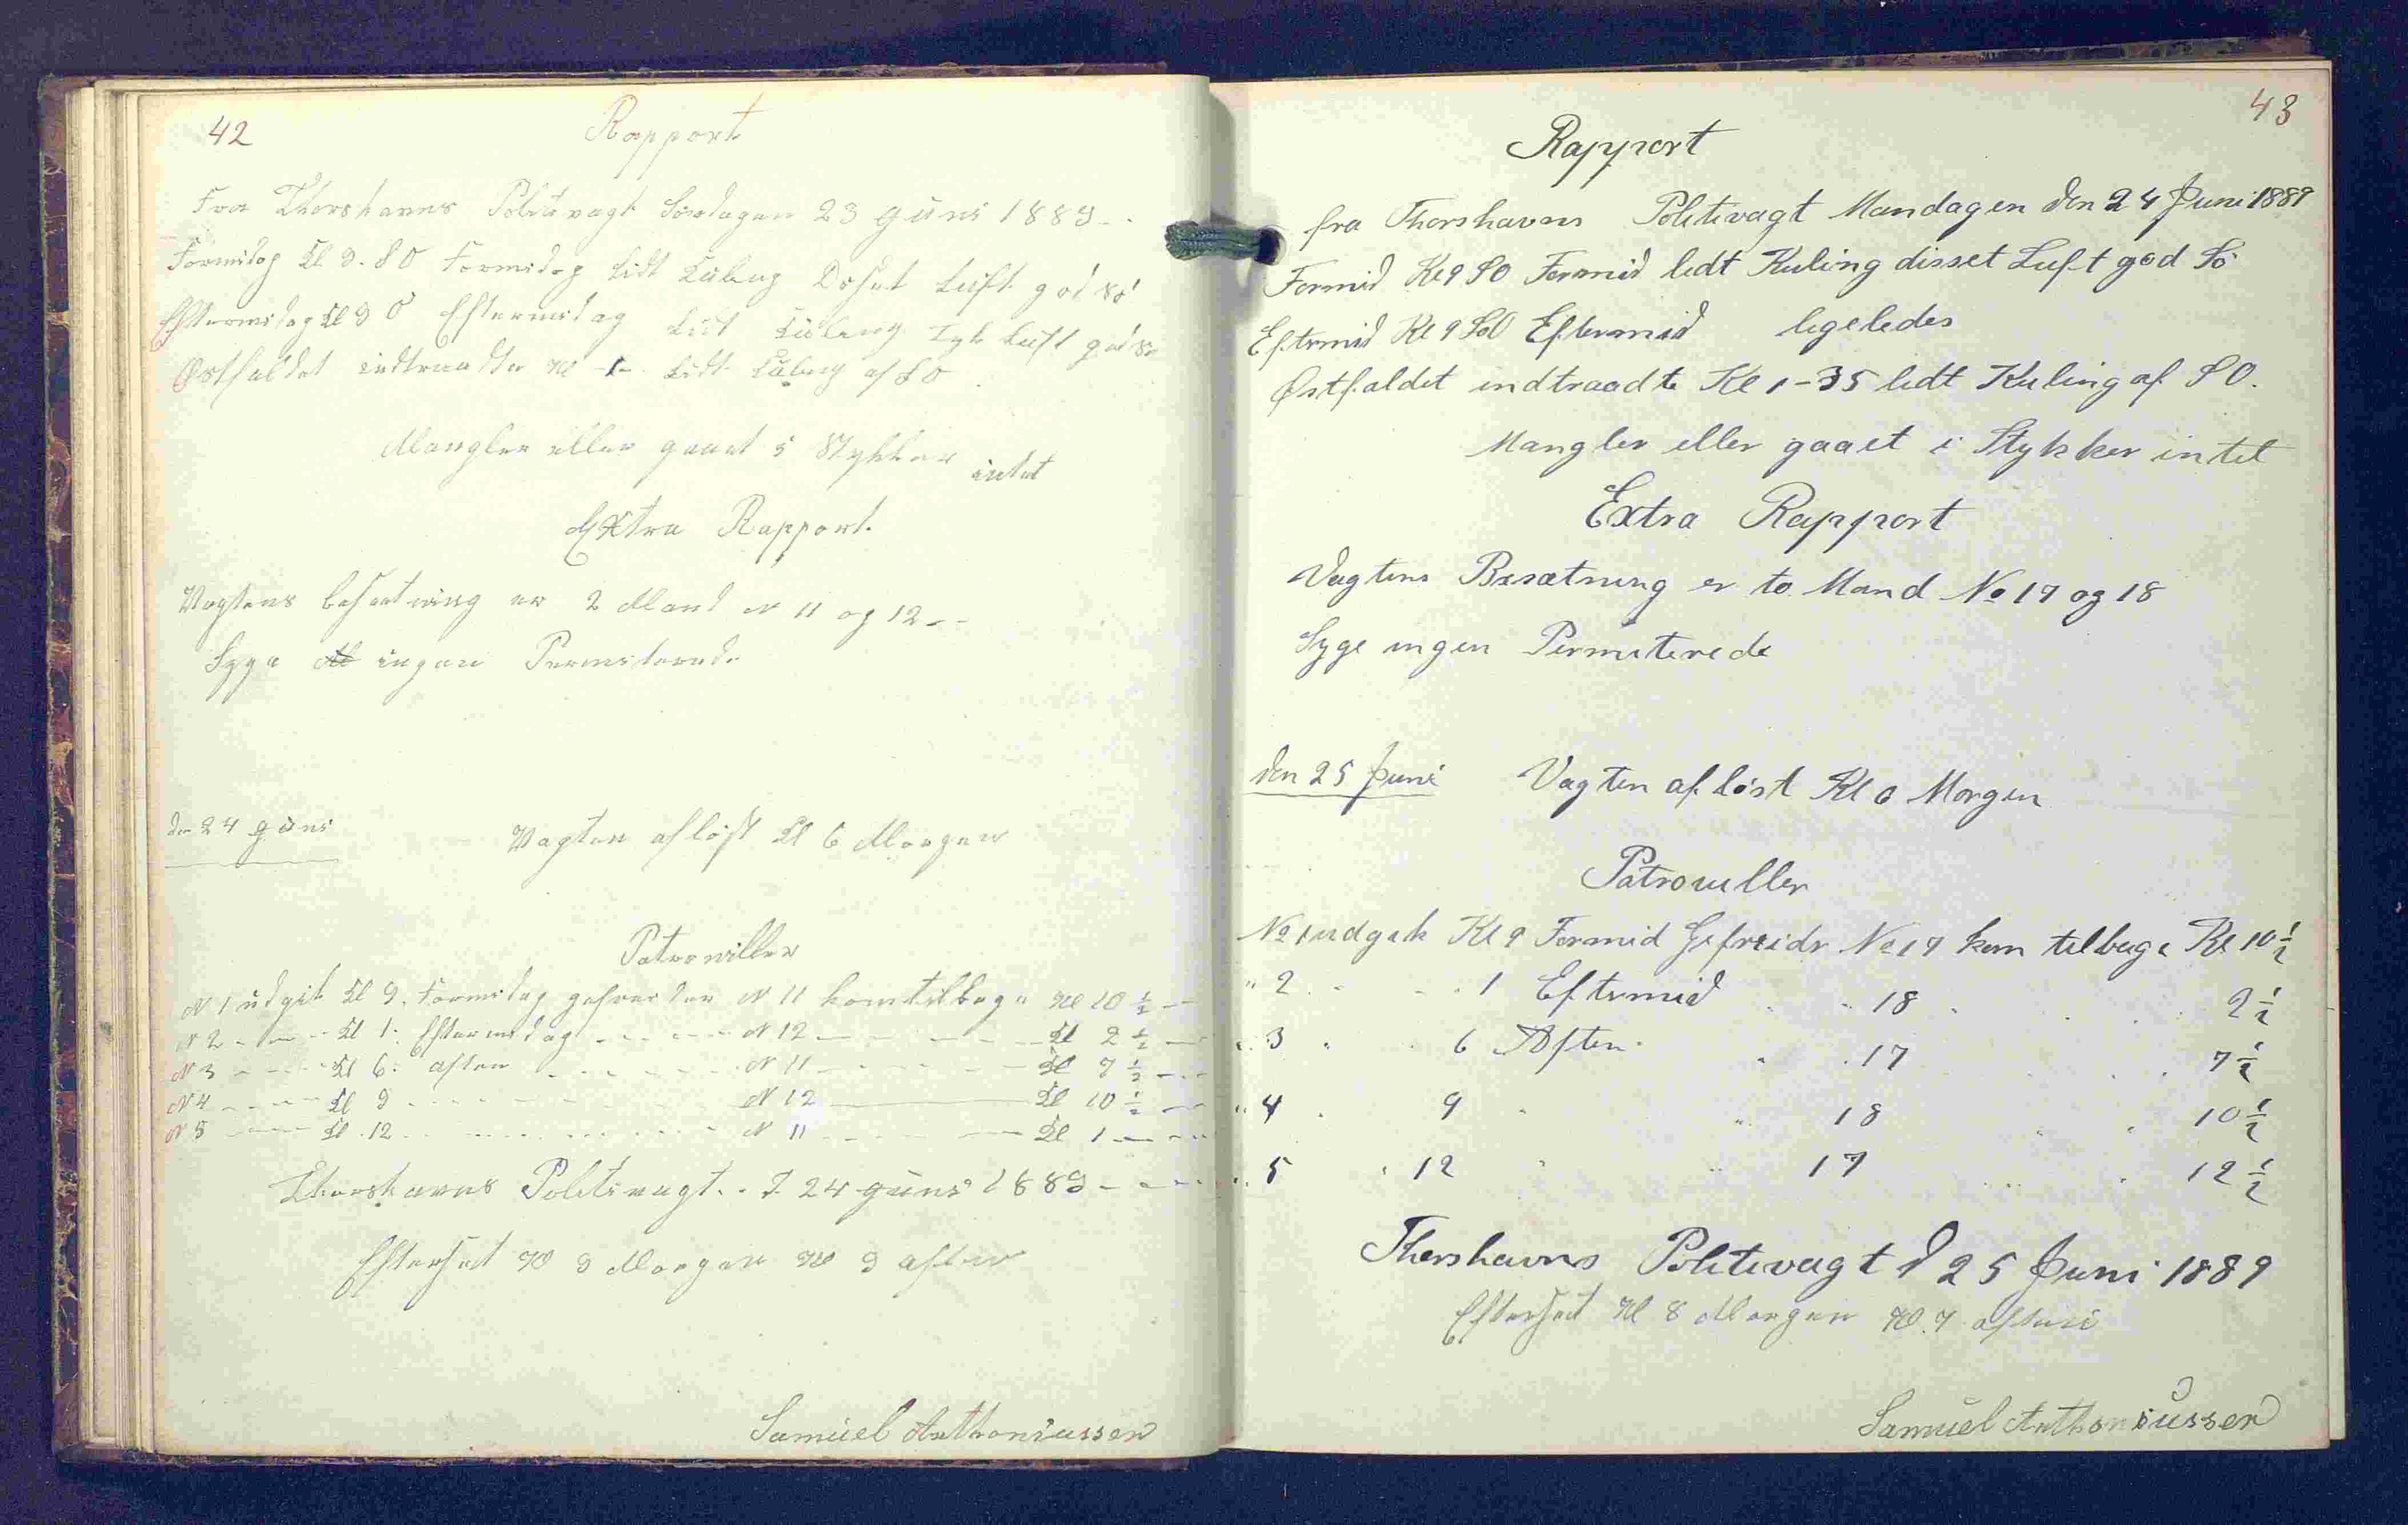 42
Rapport
Fra Thorshavns Politivagt Søndagen 23 Juni 1889
Formidag Kl 9. SO Formidag lidt Kuling Diset Luft god Sø
Eftermidag Kl 9 O Eftermidag lidt Kuling Tyk Luft god Sø
Østfaldet indtraadte Kl 1 lidt Kuling af SO
Mangler eller gaaet i Stykker intet
Extra Rapport.
Vagtens Besætning er 2 Mand N 11 og 12
Syge ingen Permiterede
den 24 Juni Vagten afløst Kl 6 Morgen
Patrouiller
N 1 udgik Kl 9. Formidag gefreider N 11 kom tilbage Kl 10 1/2
N 2 Kl 1. Eftermidag N 12 Kl 2 1/2
N 3 Kl 6. aften N 11 Kl 7 1/2
N 4 Kl 9 N 12 Kl 10 1/2
N 5 Kl. 12 N 11 Kl 1
Thorshavns Politivagt. d 24 Juni 1889
Efterset Kl 9 Morgen Kl 9 aften
Samuel Anthoniussen
43
Rapport
fra Thorshavns Politivagt Mandagen den 24 Juni 1889
Formid Kl 9 SO Formid lidt Kuling disset Luft god Sö
Eftrmid Kl 9 SO Eftermid ligeledes
Østfaldet indtraadte Kl 1-35 lidt Kuling af SO.
Mangler eller gaaet i Stykker intet
Extra Rapport
Vagtens Besætning er to Mand No 17 og 18
Syge ingen Permiterede
den 25 Juni Vagten afløst Kl 6 Morgen
Patrouiller
No 1 udgik Kl 9 Formid Gefreidr No 17 kom tilbage Kl 10 1/2
" 2 1 Eftrmid 18 2 1/2
" 3 6 Aften 17 7 1/2
" 4 9 18 10 1/2
" 5 12 17 12 1/2
Thorshavns Politivagt d 25 Juni 1889
Efterset Kl 8 Morgen Kl. 7 aften
Samuel Anthoniussen